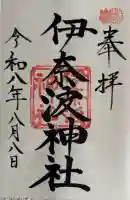 奉拝
伊奈波神社
令和八年八月八日